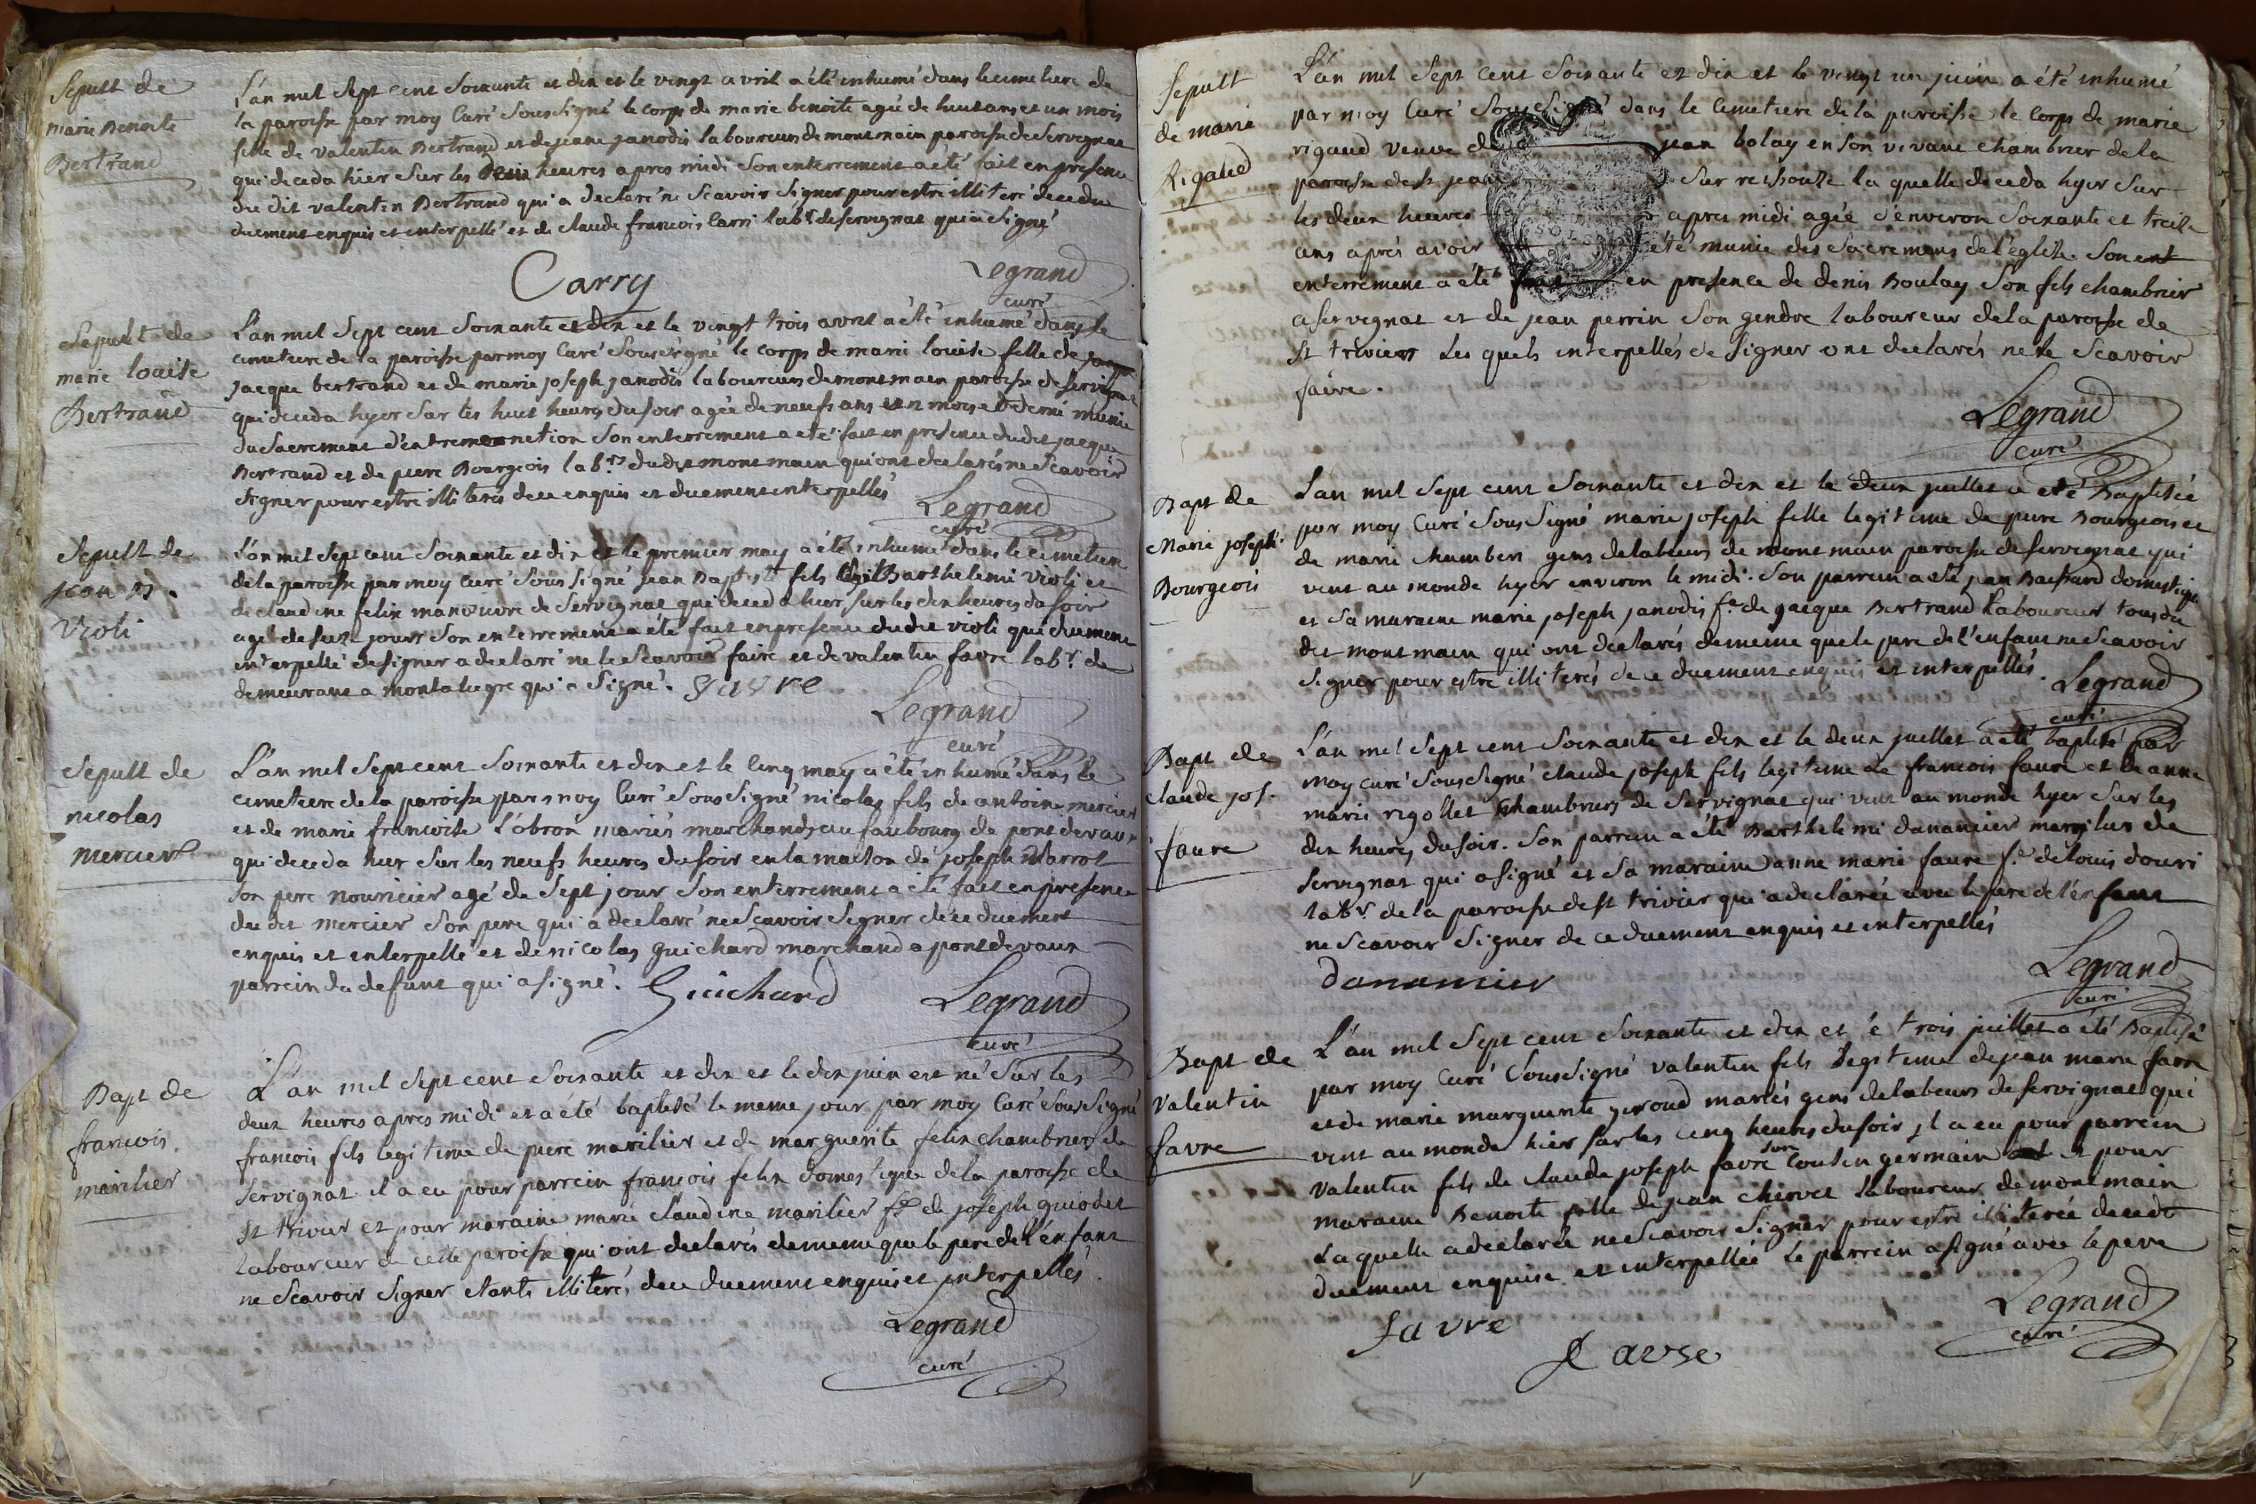 Sepult de
marie Benoite
Bertrand
L'an mil sept cent soixante et dix et le vingt avril a été inhumé dans le cimetiere de
la paroisse par moy curé soussigné le corps de marie benoite agée de huit ans et un mois
fille de valentin Bertrand et de jeane janodis laboureurs de montmain paroisse de Servignat
qui deceda hier sur les deux heures apres midi son enterrement a été fait en presence
du dit valentin Bertrand qui a declaré ne scavoir signer pour estre illiteré de ce due
duement enquis et interpellé et de claude francois Carri lab.r de servignat qui a signé
Carry
Legrand
curé
Sepult de
marie louise
Bertrand
L'an mil sept cent soixante et dix et le vingt trois avril a été inhumé dans le
cimetiere de la paroisse par moy curé soussigné le corps de marie louise fille de
jacque bertrand et de marie joseph janodis laboureurs de montmain paroisse de servignat
qui deceda hyer sur les huit heures du soir agée de neufs ans un mois et demi munie
du sacrement d'extremonction son enterrement a été fait en presence du dit jacque
Bertrand et de piere Bourgeois lab.rs du dit montmain qui ont declarés ne scavoir
signer pour estre illiterés de ce enquis et duement interpellés
Legrand
curé
Sepult de
jean B.
Violi
L'an mil sept cent soixante et dix et le premier may a été inhumé dans le cimetiere
de la paroisse par moy curé sous signé jean Baptiste fils Barthelemi violi et
de claudine felix manoeuvre de Servignat qui deceda hier sur les dix heures du soir
agé de seize jours son enterrement a été fait en presence du dit violi qui duement
interpellé de signer a declaré ne le scavoir faire et de valentin favre lab.r de
demeurant a montalegre qui a signé. favre
Legrand
curé
Sepult de
nicolas
mercier
L'an mil sept cent soixante et dix et le cinq may a été inhumé dans le
cimetiere de la paroisse par moy curé sous signé nicolas fils de antoine mercier
et de marie francoise L'obron mariés marchands au faubourg de pont de vaux
qui deceda hier sur les neufs heures du soir en la maison de joseph
son pere nouricier agé de sept jour son enterrement a été fait en presence
du dit mercier son pere qui a declaré ne scavoir signer de ce duement
enquis et interpellé et de nicolas guichard marchand a pontdevaux
parrein du defunt qui a signé. Guichard
Legrand
curé
Bapt de
francois
marilier
L'an mil sept cent soixante et dix et le dix juin est né sur les
deux heures apres midi et a été baptisé le meme jour par moy Curé sous signé
francois fils legitime de piere marilier et de marguerite felix chambriers de
Servignat il a eu pour parrein francois felix domestique de la paroisse de
St trivier et pour maraine marie claudine marilier f.e de joseph guiodet
laboureur de cette paroisse qui ont declarés de meme que le pere de l'enfant
ne scavoir signer etants illiterés de ce duement enquis et interpellés.
Legrand
curé
Sepult
de marie
Rigaud
L'an mil sept cent soixante et dix et le vingt un juin a été inhumé
par moy curé soussigné dans le cimetiere de la paroisse le corps de marie
rigaud veuve de jean bolay en son vivant chambrier de la
paroisse de st jean sur reissouze la quelle deceda hyer sur
les deux heures apres midi agée d'environ soixante et treize
ans aprés avoir été munie des sacremens de l'eglise. Son
enterrement a été fait en presence de denis Boulay son fils chambrier
a servignat et de jean perrin son gendre laboureur de la paroisse de
st trivier Les quels interpellés de signer ont declarés ne le scavoir
faire.
Legrand
curé
Bapt de
Marie joseph
Bourgeois
L'an mil sept cent soixante et dix et le deux juillet a eté Baptisée
par moy Curé soussigné marie joseph fille legitime de piere Bourgeois et
de marie humbert gens de labeurs de montmain paroisse de servignat qui
vint au monde hyer environ le midi. Son parrein a eté jean domestique
et sa maraine marie joseph janodis f.e de jacque Bertrand laboureur tous du
dit montmain qui ont declarés de meme que le pere de l'enfant ne scavoir
signer pour estre illiterés de ce duement enquis et interpellés.
Legrand
curé
Bapt de
claude jos.
faure
L'an mil sept cent soixante et dix et le deux juillet a été baptisé par
moy curé soussigné claude joseph fils legitime de francois faure et de anne
marie rigollet chambriers de Servignat qui vint au monde hyer sur les
dix heures du soir. Son parrein a été Barthelemi danancier margilier de
servignat qui a signé et sa maraine anne marie faure f.e de louis douri
lab.r de la paroisse de st trivier qui a declarée avec le pere de l'enfant
ne scavoir signer de ce duement enquis et interpellés
danancier
Legrand
curé
Bapt de
Valentin
favre
L'an mil sept cent soixante et dix et le trois juillet a été Baptisé
par moy Curé soussigné valentin fils legitime de jean marie favre
et de marie marguerite giroud mariés gens de labeurs de servignat qui
vint au monde hier sur les cinq heures du soir il a eu pour parrein
valentin fils de claude joseph favre son cousin germain et pour
maraine Benoite fille de jean chervet laboureur de montmain
Laquelle a declarée ne scavoir signer pour estre illiterée de ce
duement enquise et interpellée Le parrein a signé avec le pere
favre
favre
Legrand
curé